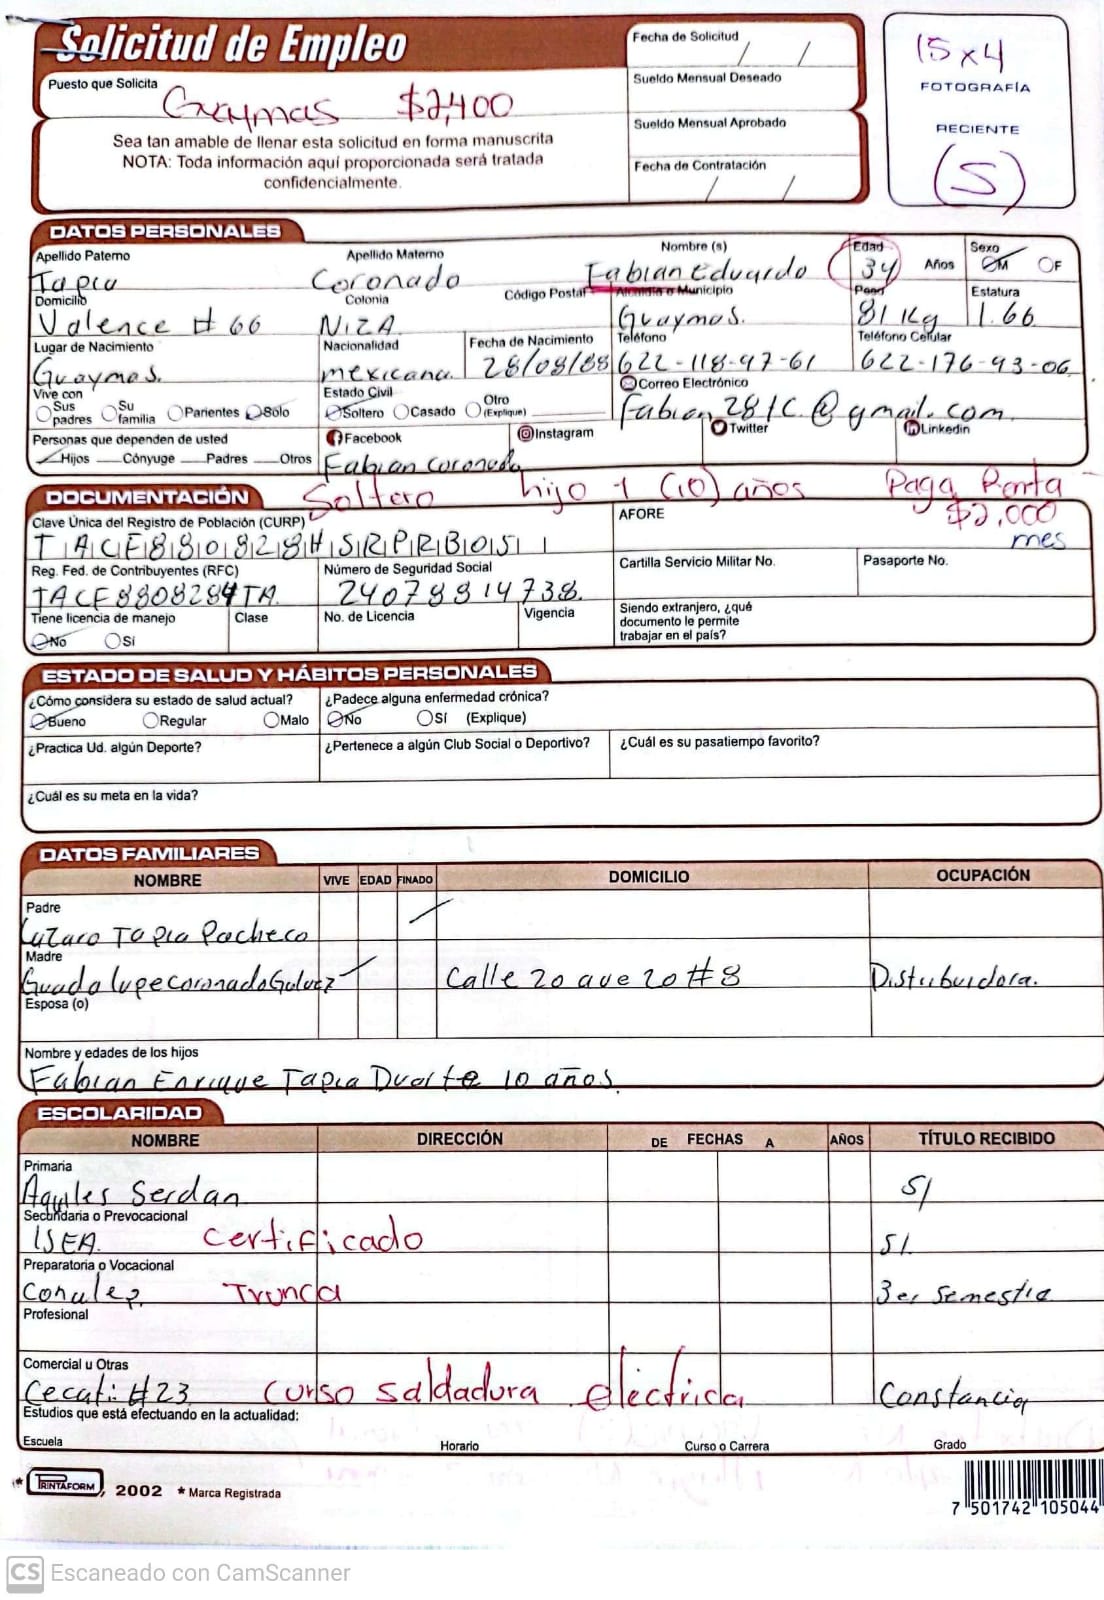 Solicitud de Empleo
Fecha de Solicitud / /
Puesto que Solicita
Guaymas $2,400
Sueldo Mensual Deseado
Sea tan amable de llenar esta solicitud en forma manuscrita
NOTA: Toda información aquí proporcionada será tratada
confidencialmente.
Sueldo Mensual Aprobado
Fecha de Contratación / /
15x4
FOTOGRAFÍA
RECIENTE
(S)
DATOS PERSONALES
Apellido Paterno Apellido Materno Nombre (s) Edad Años Sexo
Tapia Coronado Fabian Eduardo 34 M F
Domicilio Colonia Código Postal Alcaldía o Municipio Peso Estatura
Valence # 66 NIZA Guaymas. 81 Kg 1.66
Lugar de Nacimiento Nacionalidad Fecha de Nacimiento Teléfono Teléfono Celular
Guaymas. mexicana. 28/08/88 622-118-97-61 622-176-93-06
Vive con Estado Civil Correo Electrónico
Sus padres Su familia Parientes Solo Soltero Casado Otro (Explique) Fabian281C.@gmail.com.
Personas que dependen de usted Facebook Instagram Twitter Linkedin
Hijos Cónyuge Padres Otros Fabian coronado
DOCUMENTACIÓN Soltero hijo 1 (10) años Paga Renta
$2,000
mes
Clave Única del Registro de Población (CURP) AFORE
TACF880828HSRPRB05
Reg. Fed. de Contribuyentes (RFC) Número de Seguridad Social Cartilla Servicio Militar No. Pasaporte No.
TACF8808284TA. 24078814738.
Tiene licencia de manejo Clase No. de Licencia Vigencia
No Sí
Siendo extranjero, ¿qué
documento le permite
trabajar en el país?
ESTADO DE SALUD Y HÁBITOS PERSONALES
¿Cómo considera su estado de salud actual? ¿Padece alguna enfermedad crónica?
Bueno Regular Malo No Sí (Explique)
¿Practica Ud. algún Deporte? ¿Pertenece a algún Club Social o Deportivo? ¿Cuál es su pasatiempo favorito?
¿Cuál es su meta en la vida?
DATOS FAMILIARES
NOMBRE VIVE EDAD FINADO DOMICILIO OCUPACIÓN
Padre
Lazaro Tapia Pacheco
Madre
Guadalupe Coronado Galvez Calle 20 ave 20 #8 Distribuidora.
Esposa (o)
Nombre y edades de los hijos
Fabian Enrique Tapia Duarte 10 años.
ESCOLARIDAD
NOMBRE DIRECCIÓN DE FECHAS A AÑOS TÍTULO RECIBIDO
Primaria
Aquiles Serdan SI
Secundaria o Prevocacional
ISEA. Certificado SI.
Preparatoria o Vocacional
Conalep. Trunca 3er Semestre
Profesional
Comercial u Otras
Cecati #23 curso saldadura electrica Constancia
Estudios que está efectuando en la actualidad:
Escuela Horario Curso o Carrera Grado
PRINTAFORM, 2002 * Marca Registrada
7 501742 105044
CS Escaneado con CamScanner